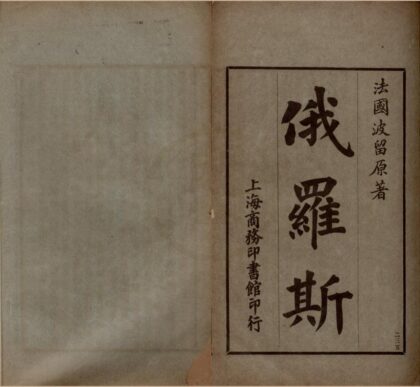 法國波留原著
俄羅斯
上海商務印書館印行